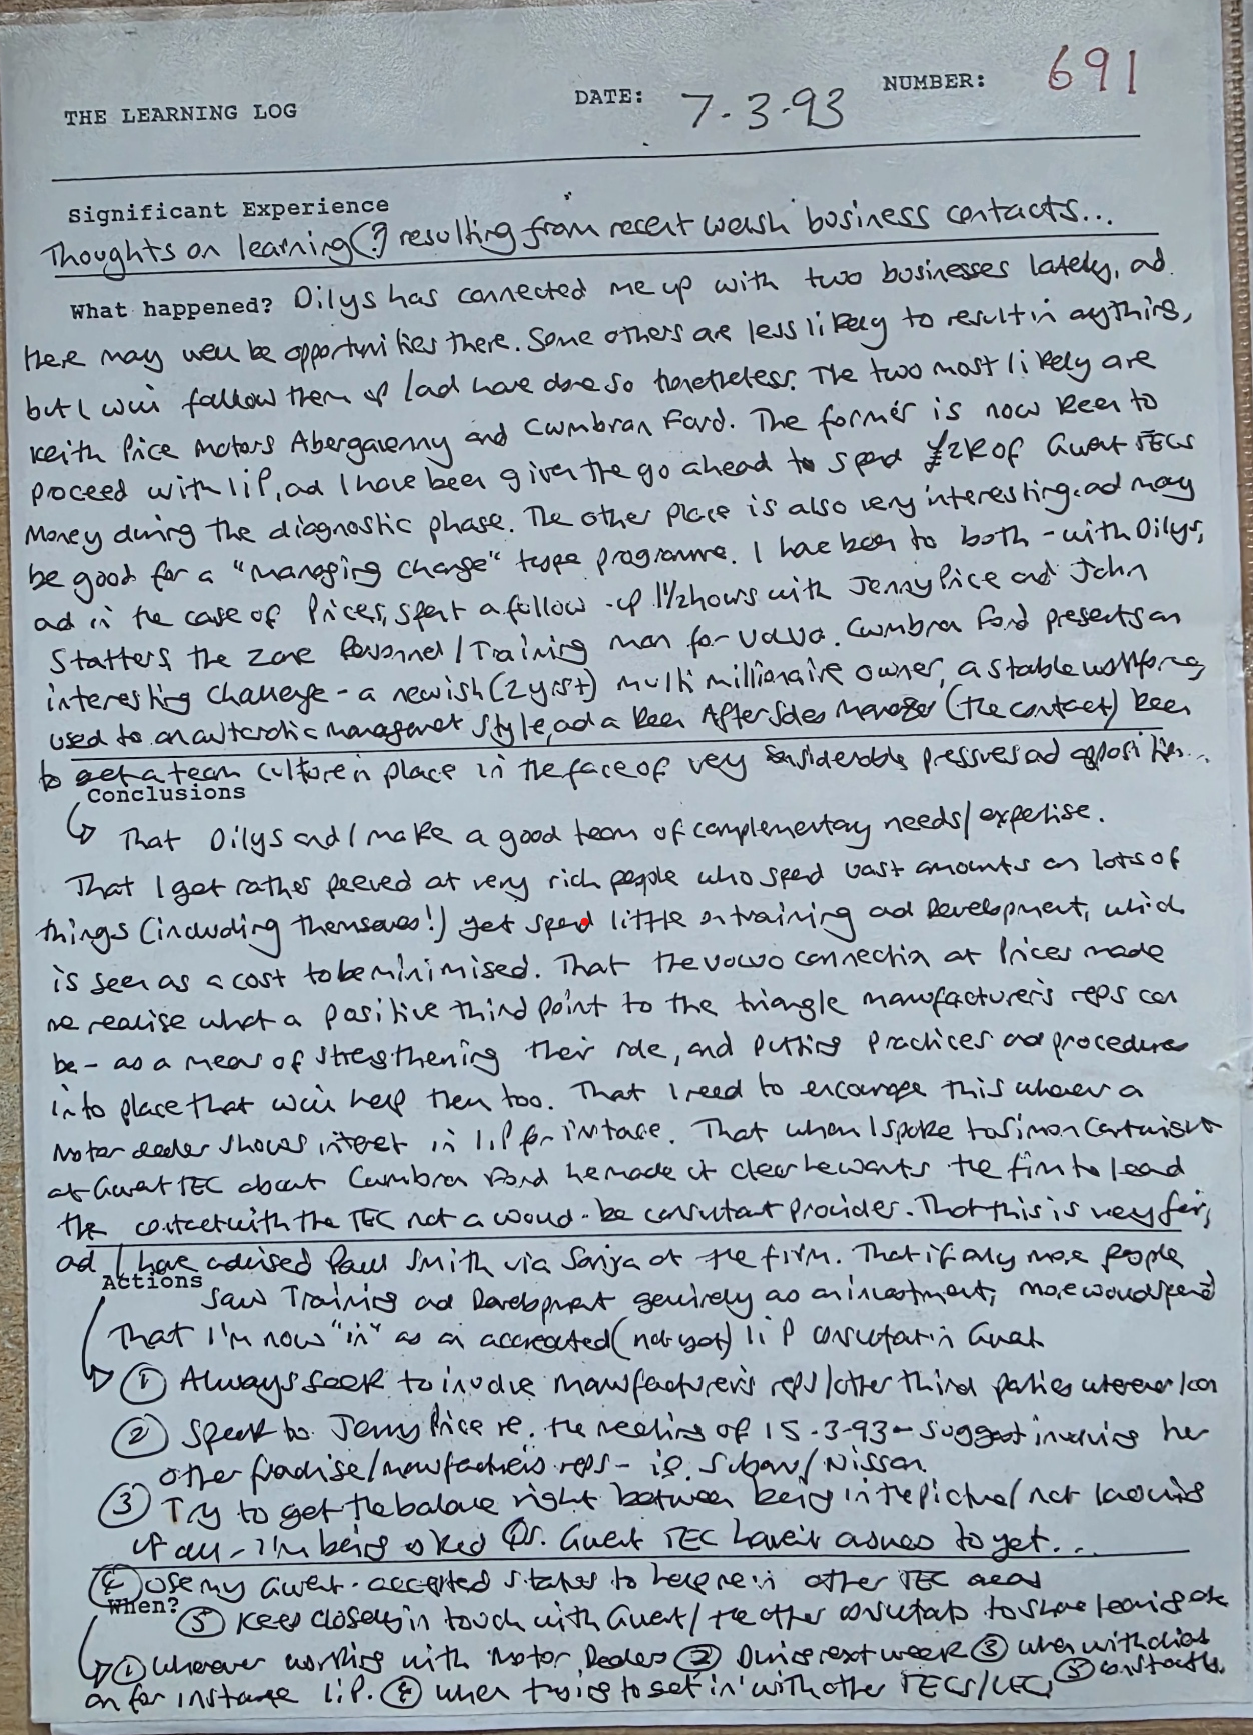 THE LEARNING LOG DATE: 7.3.93 NUMBER: 691
Significant Experience
Thoughts on learning(?) resulting from recent welsh business contacts...
What happened? Dilys has connected me up with two businesses lately, ad
there may well be opportunities there. Some others are less likely to result in anything,
but I will follow them up /ad have done so nonetheless. The two most likely are
Keith Price Motors Abergavenny and Cwmbran Ford. The former is now keen to
proceed with IiP, ad I have been given the go ahead to spend £2K of Gwent TECs
Money during the diagnostic phase. The other place is also very interesting, ad may
be good for a "Managing Change" type programme. I have been to both - with Dilys,
ad in the case of Prices, spent a follow-up 1½ hours with Jenny Price and John
Statters, the Zone Personnel/Training man for Volvo. Cwmbran Ford presents an
interesting challenge - a newish (2 yrs+) multi millionaire owner, a stable workforce,
used to an autocratic management style, ad a keen After Sales Manager (the contact) keen
to get a team culture in place in the face of very considerable pressures ad opposition...
Conclusions
That Dilys and I make a good team of complementary needs/expertise.
That I get rather peeved at very rich people who spend vast amounts on lots of
things (including themselves!) yet spend little on training ad Development, which
is seen as a cost to be minimised. That the Volvo connection at Prices made
me realise what a positive third point to the triangle manufacturer's reps can
be - as a means of strengthening their role, and putting practices ad procedures
into place that will help them too. That I need to encourage this wherever a
Motor dealer shows interest in IiP for instance. That when I spoke to Simon Cartwright
at Gwent TEC about Cwmbran Ford he made it clear he wants the firm to lead
the contact with the TEC not a would-be consultant provider. That this is very fair,
ad I have advised Paul Smith via Sonja at the firm. That if only more people
Actions
saw Training ad Development genuinely as an investment, more would spend
That I'm now "in" as an accredited (not yet) IiP consultant in Gwent
① Always seek to involve manufacturer's reps/other third parties wherever I can
② Speak to Jenny Price re. the meeting of 15.3.93 - suggest involving her
other franchise/manufacturer's reps - ie. Subaru/Nissan.
③ Try to get the balance right between being in the picture/not knowing
if all - I'm being asked Qs. Gwent TEC haven't answers to yet...
④ Use my Gwent-accepted status to help me in other TEC areas
When?
⑤ Keep closely in touch with Gwent/the other consultants to share learning etc
① Wherever working with Motor Dealers ② During next week ③ When with clients
on for instance IiP. ④ When trying to get 'in' with other TECs/LECs ⑤ Constantly.